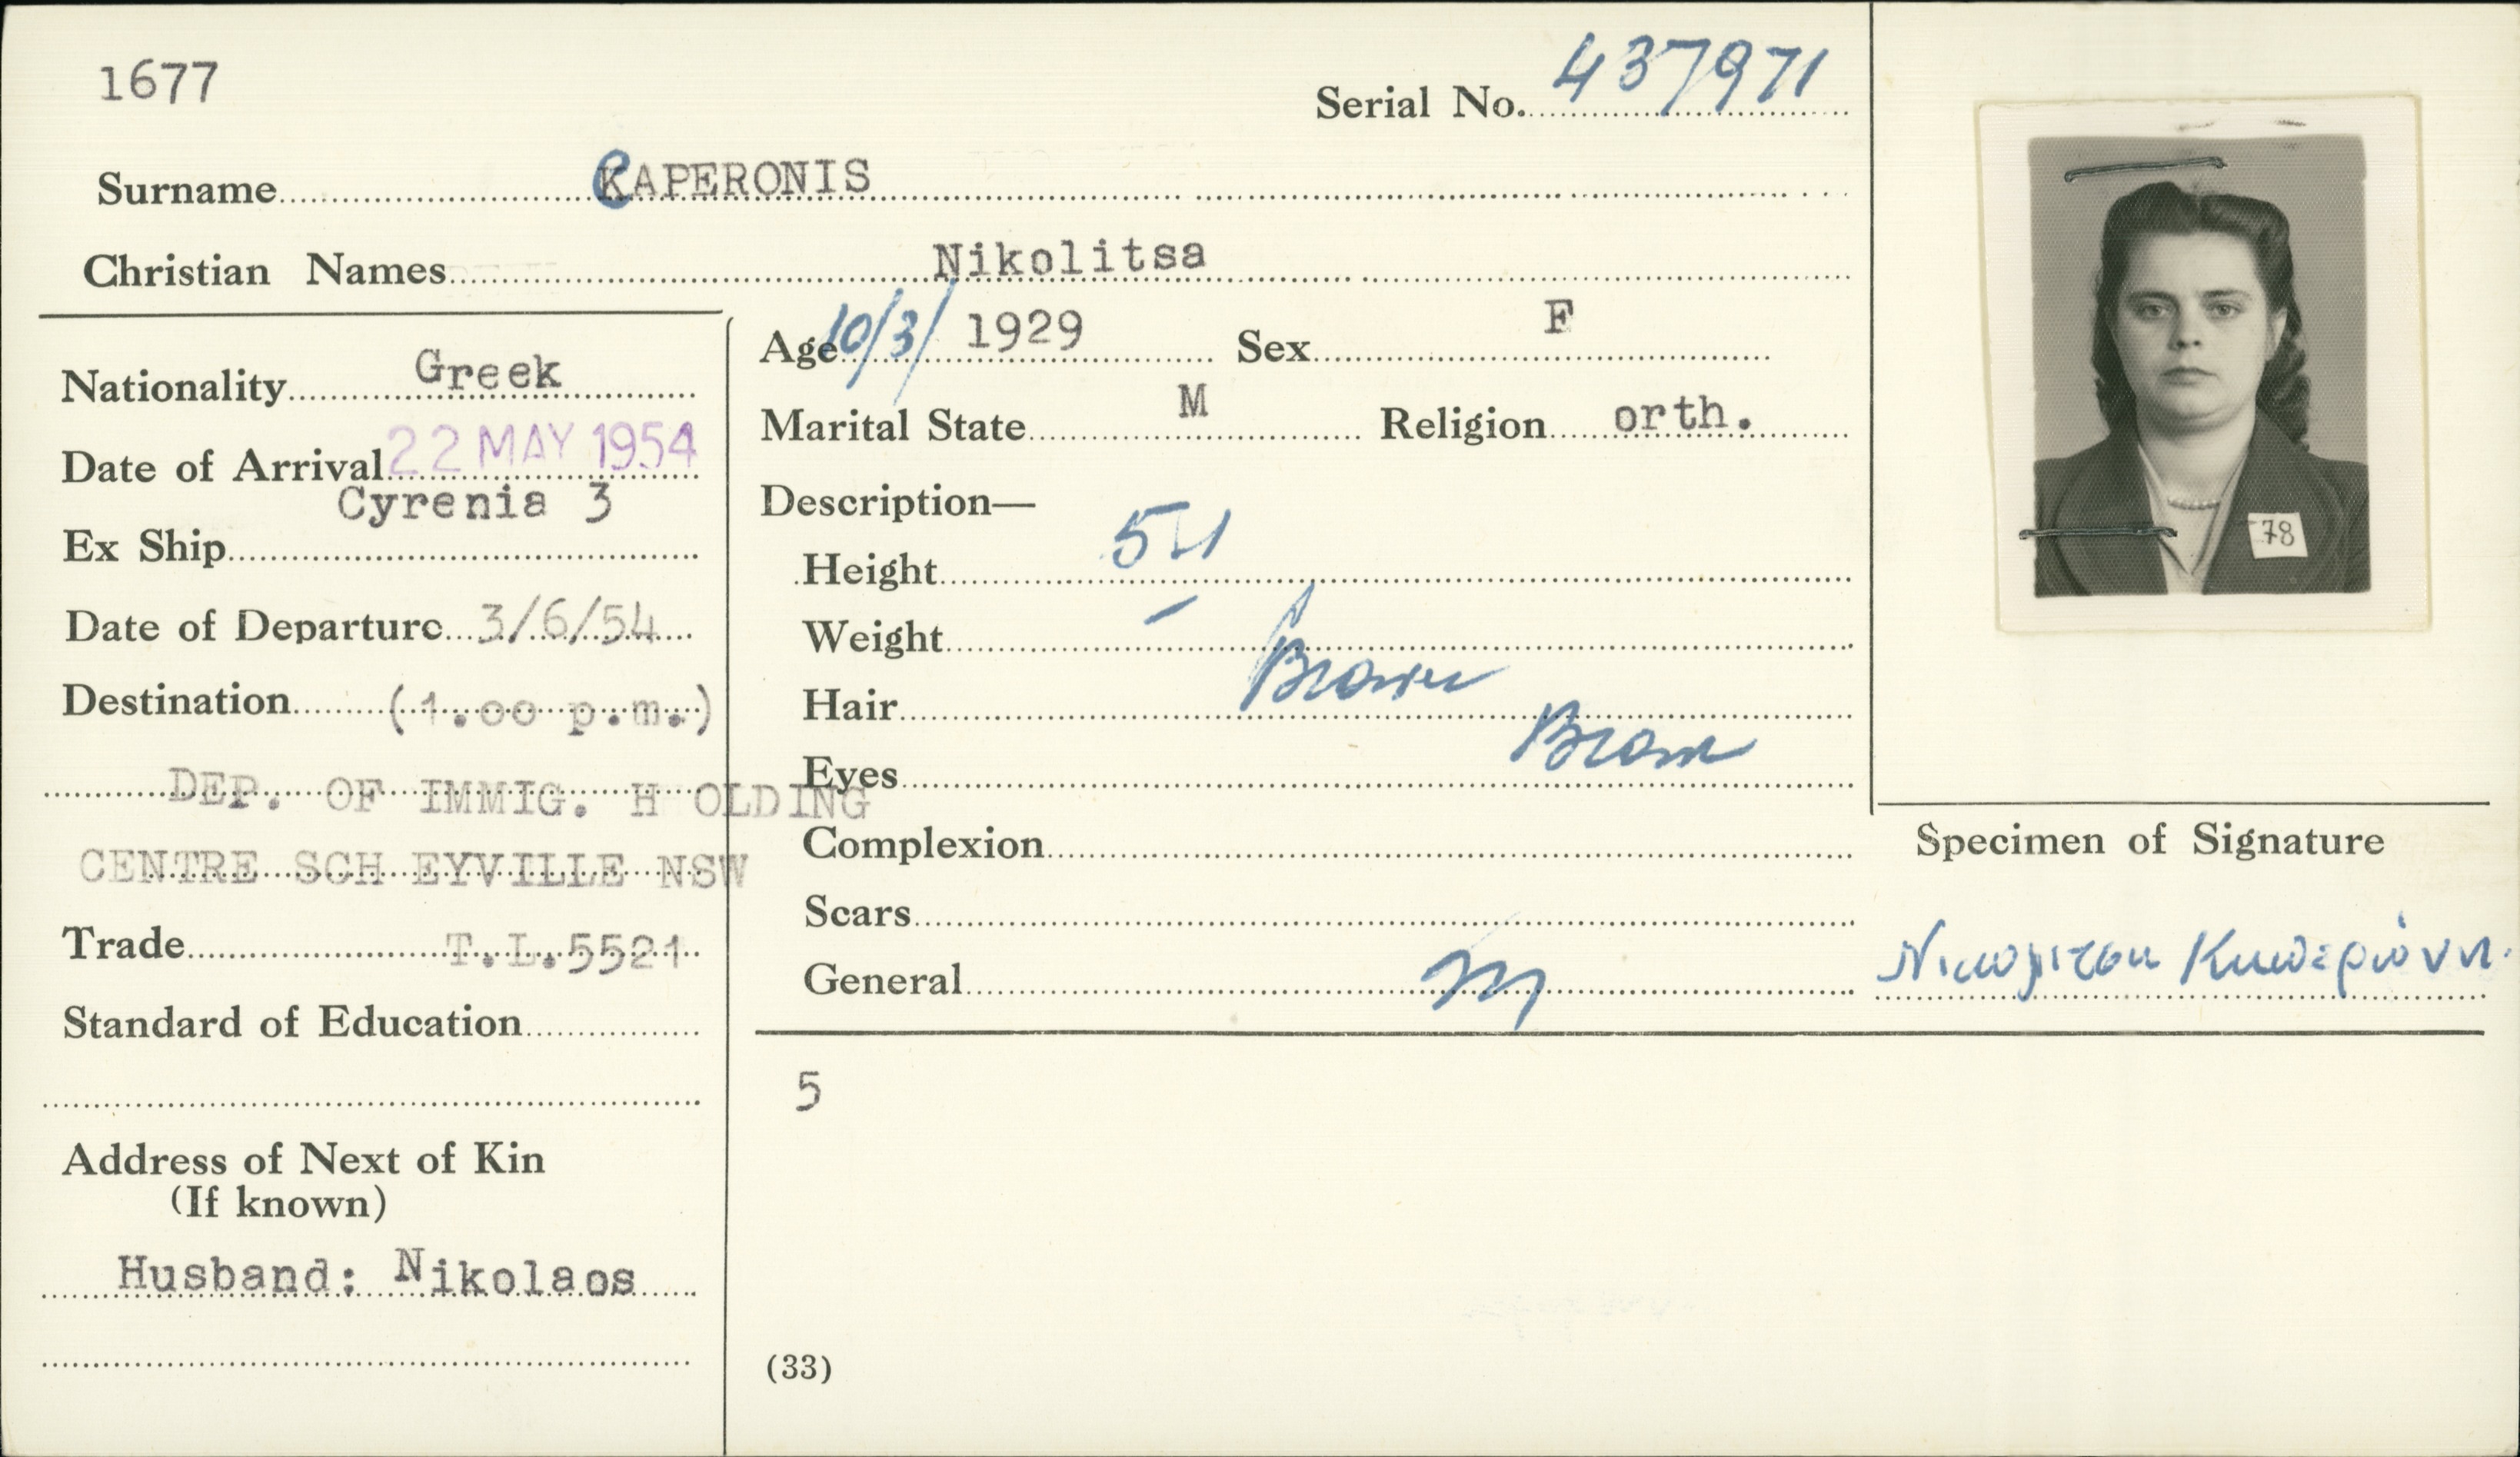 1677
Serial No. 437971
Surname KAPERONIS
Christian Names Nikolitsa
Nationality Greek
Date of Arrival 22 MAY 1954
Cyrenia 3
Ex Ship
Date of Departure 3/6/54
Destination (1.00 p.m.)
DEP. OF IMMIG. H OLDING
CENTRE SCH EYVILLE NSW
Trade T.L.5521
Standard of Education
Address of Next of Kin
(If known)
Husband: Nikolaos
Age 10/3/ 1929 Sex F
Marital State M Religion orth.
Description—
Height
Weight –
Hair Brown
Eyes Brown
Complexion
Scars
General
5
(33)
78
Specimen of Signature